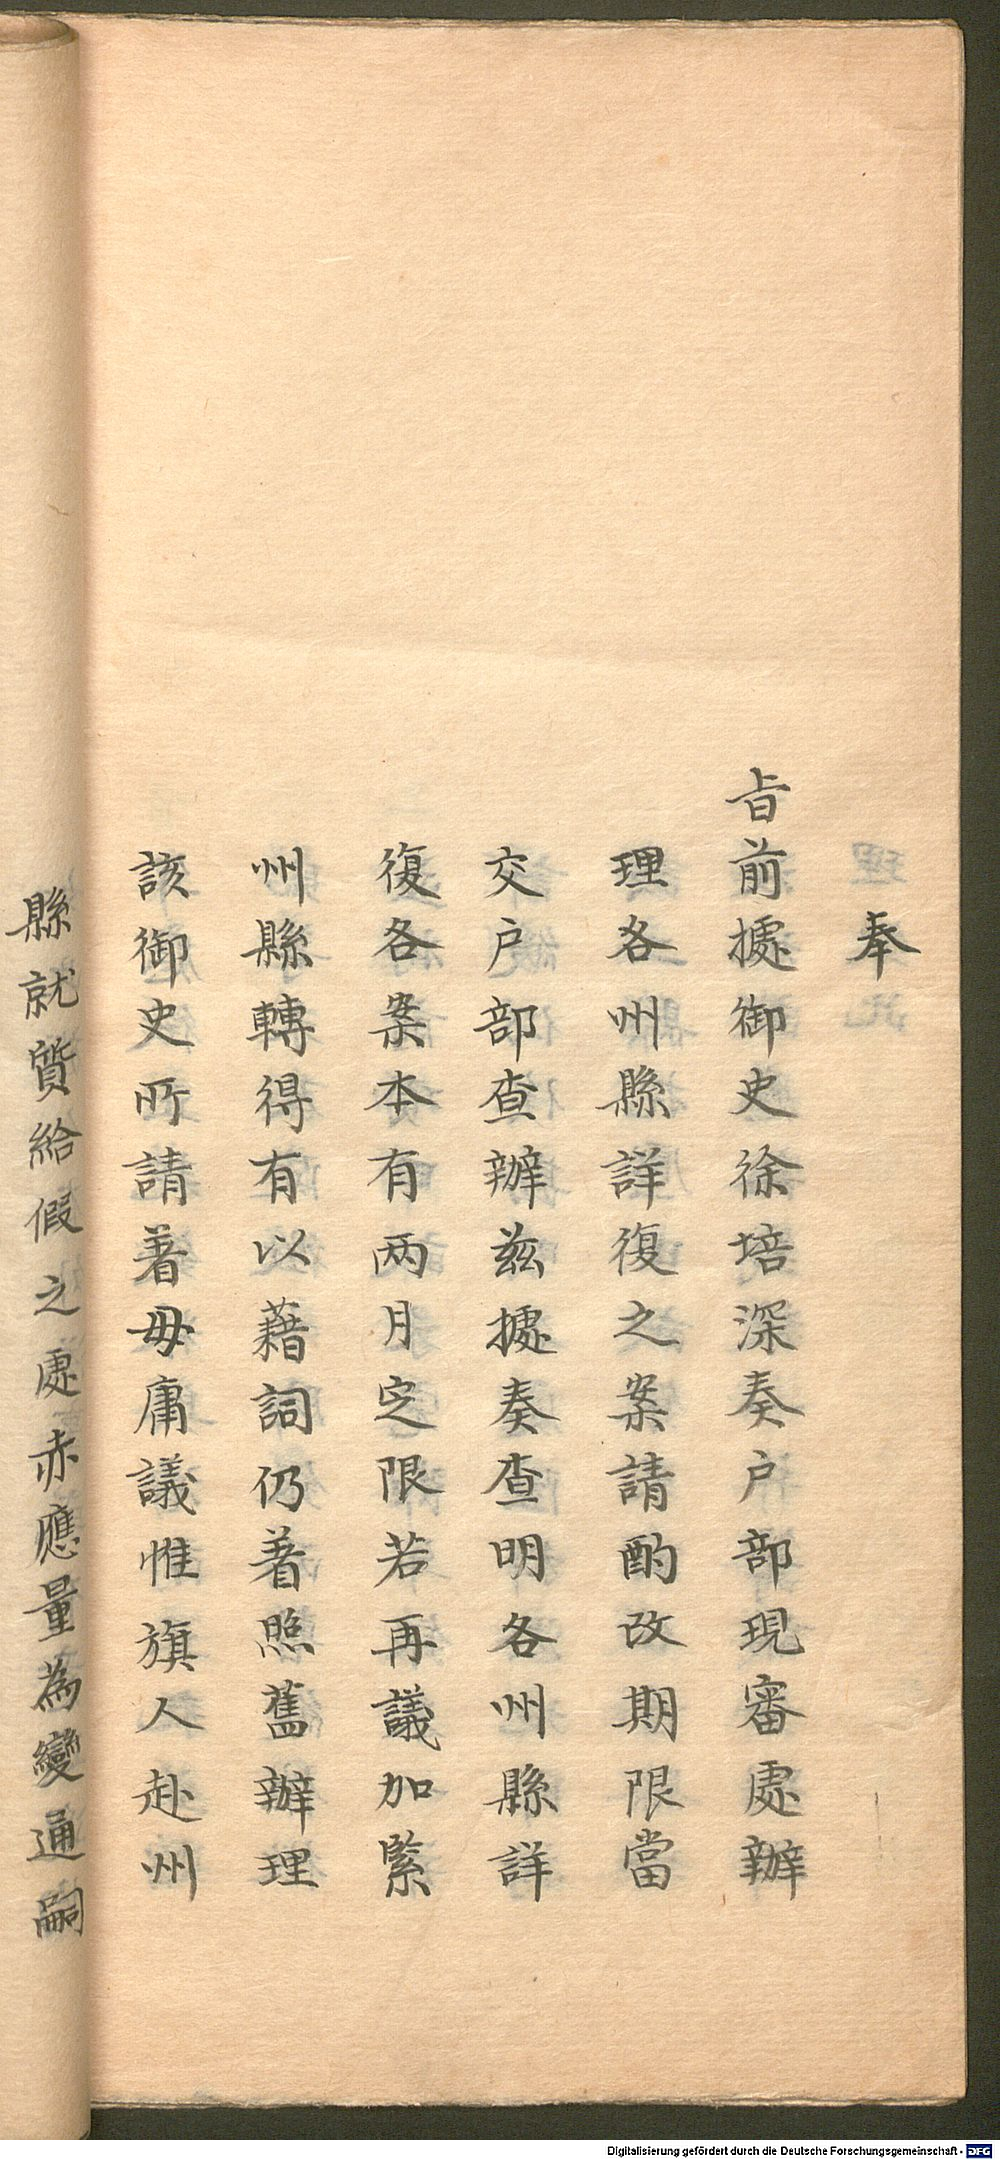 奉
旨前據御史徐培深奏户部現審處辦
理各州縣詳復之案請酌改期限當
交户部查辦兹據奏查明各州縣詳
復各案本有两月定限若再議加緊
州縣轉得有以藉詞仍著照舊辦理
該御史所請著毋庸議惟旗人赴州
縣就質給假之處亦應量為變通嗣
Digitalisierung gefördert durch die Deutsche Forschungsgemeinschaft - DFG